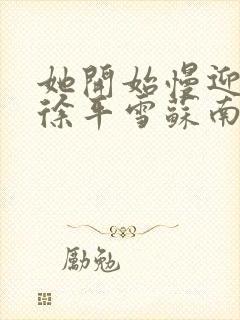 她開始慢迎
徐平雪蘇南
勵勉